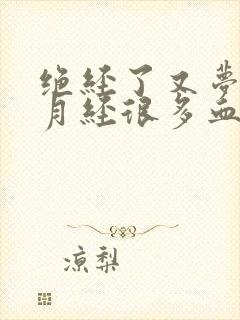 绝经了又夢
月经很多血
凉梨